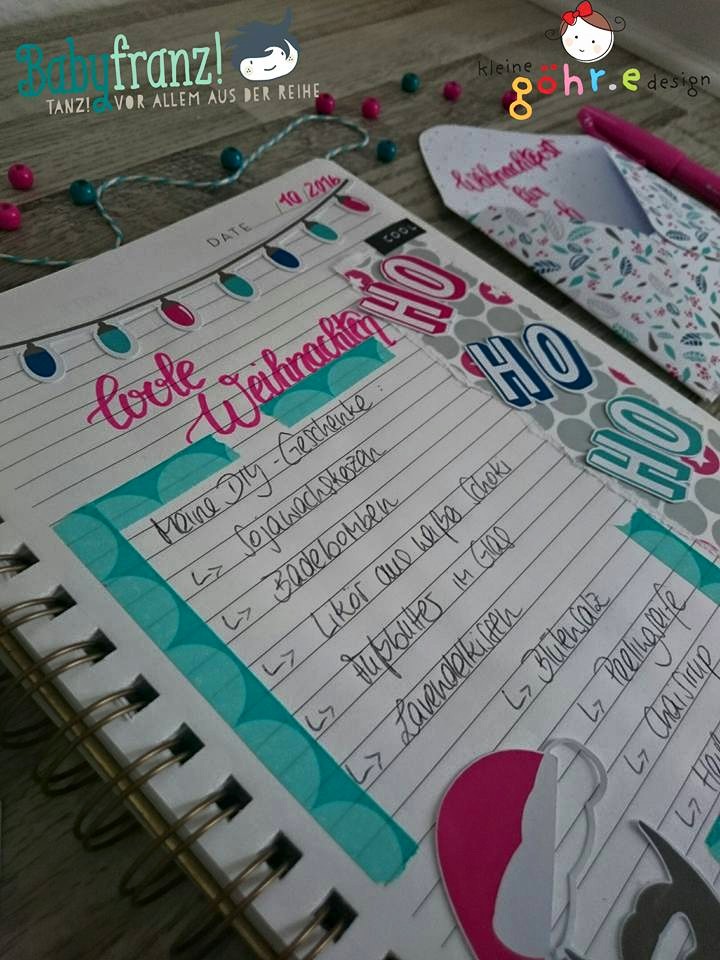 Babyfranz!
TANZ! VOR ALLEM AUS DER REIHE
kleine
göhr.e design
DATE 10/2016
COOL
HO
HO
HO
Weihnachtspost
für
Coole
Weihnachten
Meine DIY-Geschenke:
↳ Sojawachskerzen
↳ Badebomben
↳ Likör aus weißer Schoki
↳ Fußbutter im Glas
↳ Lavendelkissen
↳ Blütensalz
↳ Peelingseife
↳ Chaisirup
↳